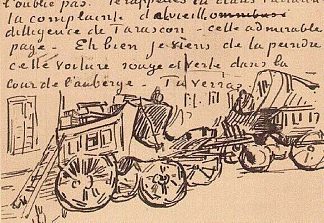 l'oublie pas. Te rappelles tu dans Tartarin
la complainte de la vieille
dilligence de Tarascon - cette admirable
page - Eh bien je viens de la peindre
cette voiture rouge et verte dans la
cour de l'auberge. Tu verras